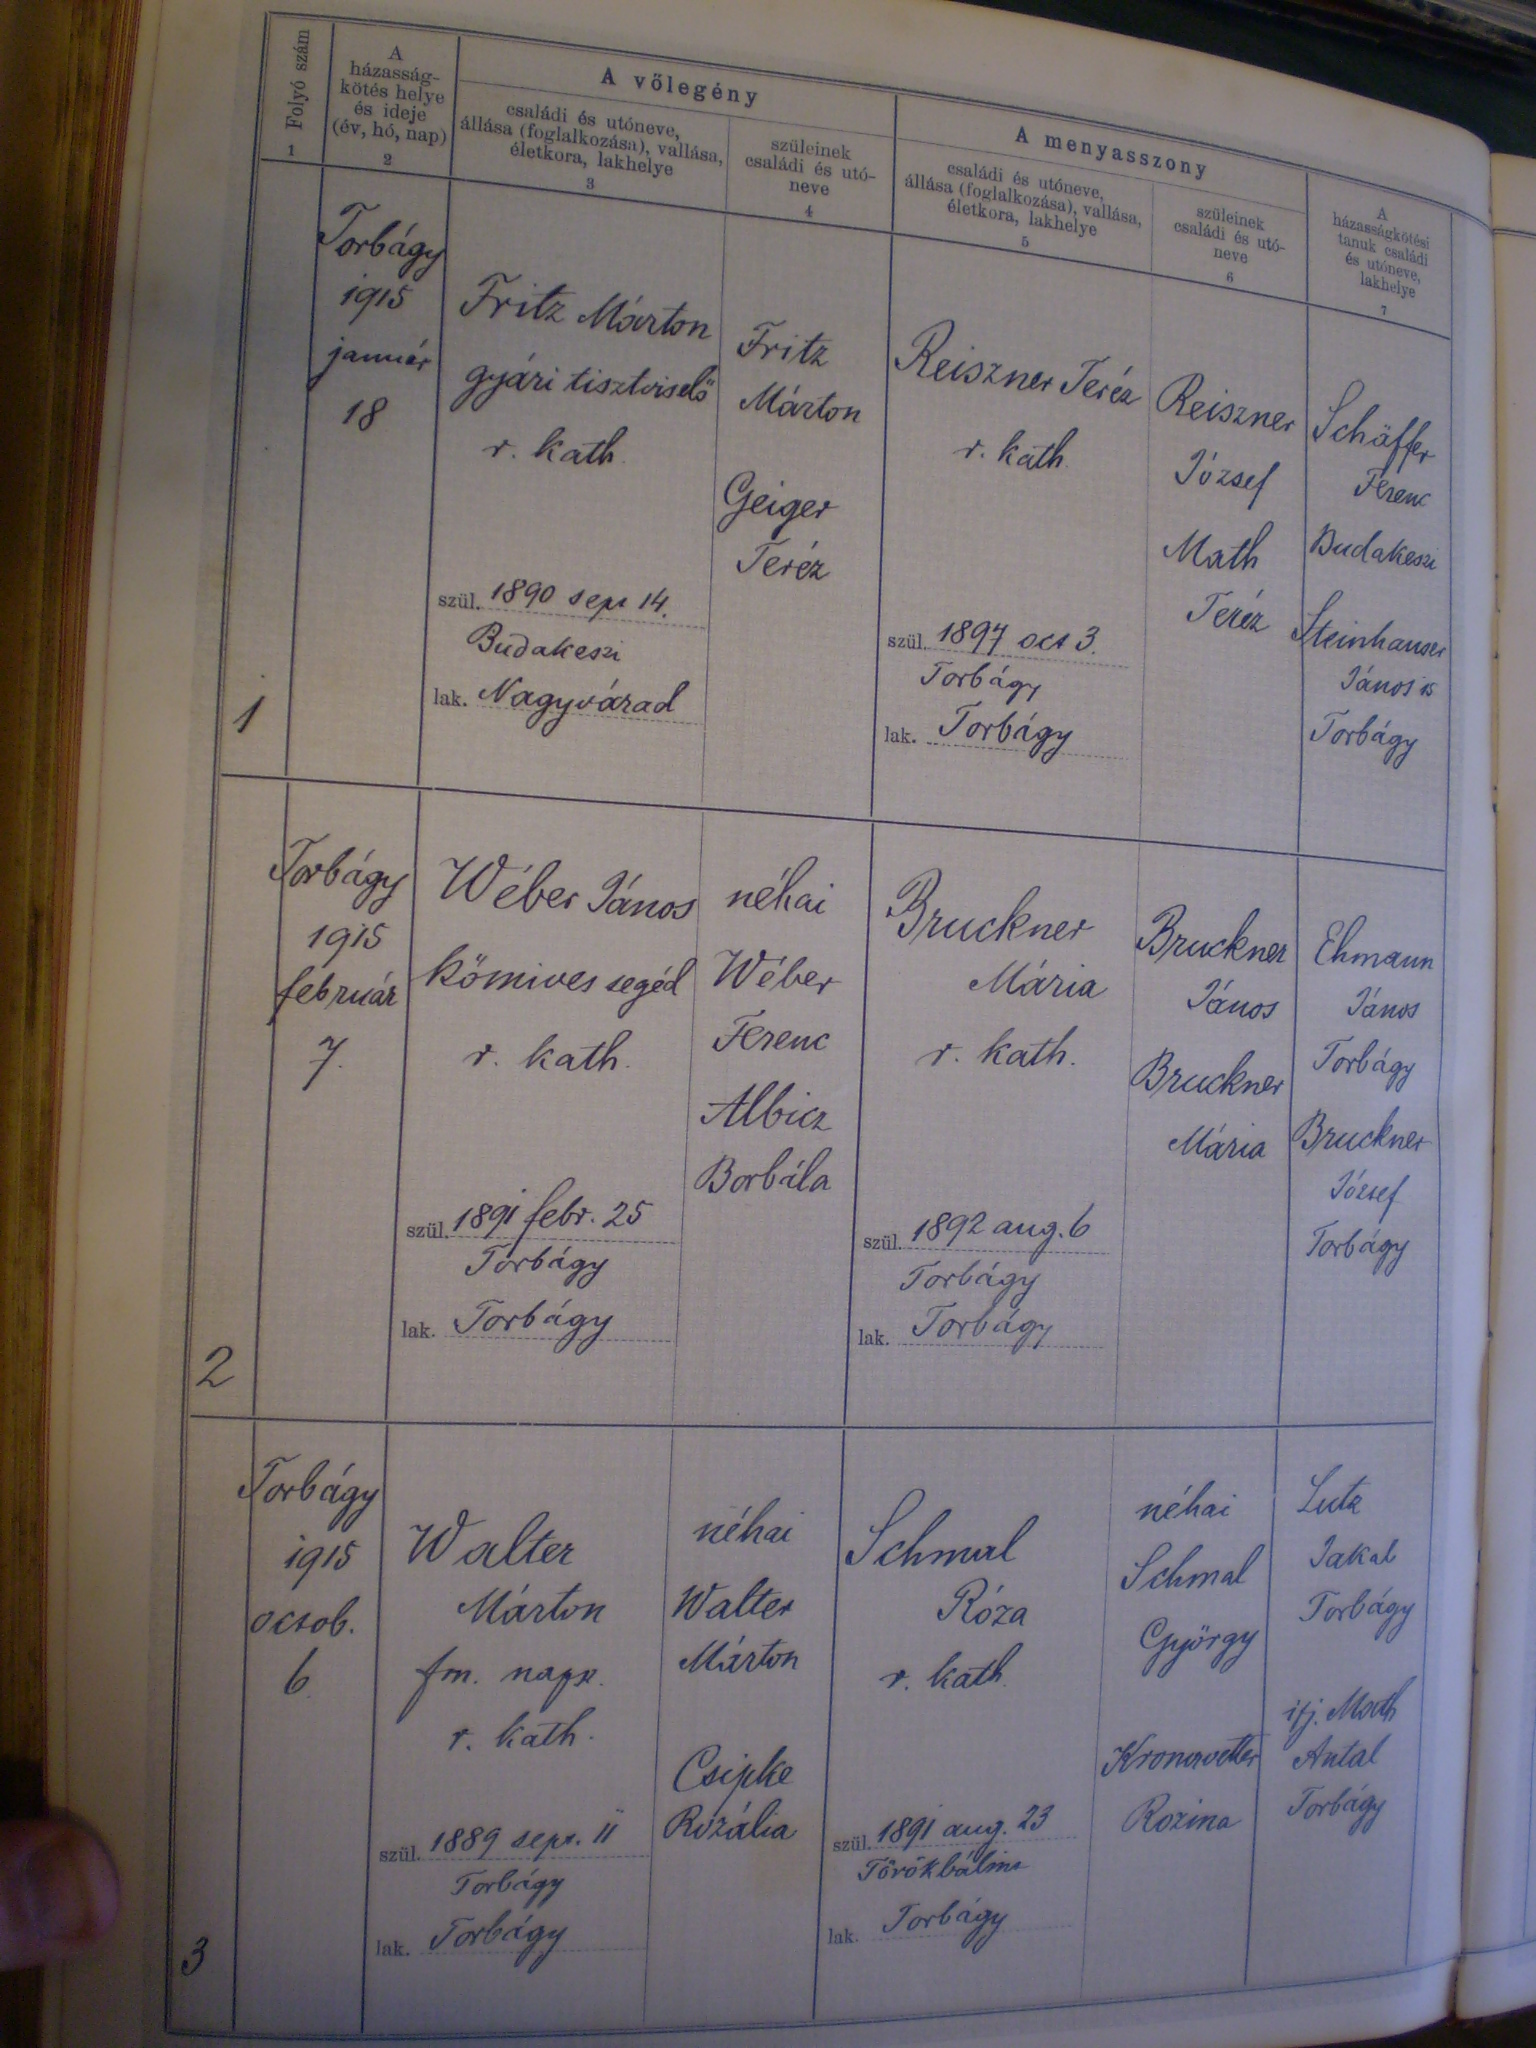 Folyó szám
1
A
házasság-
kötés helye
és ideje
(év, hó, nap)
2
A vőlegény
családi és utóneve,
állása (foglalkozása), vallása,
életkora, lakhelye
3
szüleinek
családi és utó-
neve
4
A menyasszony
családi és utóneve,
állása (foglalkozása), vallása,
életkora, lakhelye
5
szüleinek
családi és utó-
neve
6
A
házasságkötési
tanuk családi
és utóneve,
lakhelye
7
1
Torbágy
1915
január
18
Fritz Márton
gyári tisztviselő
r. kath.
szül. 1890 sept 14.
Budakeszi
lak. Nagyvárad
Fritz
Márton
Geiger
Teréz
Reiszner Teréz
r. kath.
szül. 1897 oct 3.
Torbágy
lak. Torbágy
Reiszner
József
Math
Teréz
Schäffer
Ferenc
Budakeszi
Steinhauser
János is
Torbágy
2
Torbágy
1915
február
7.
Wéber János
kőmives segéd
r. kath.
szül. 1891 febr. 25
Torbágy
lak. Torbágy
néhai
Wéber
Ferenc
Albicz
Borbála
Bruckner
Mária
r. kath.
szül. 1892 aug. 6
Torbágy
lak. Torbágy
Bruckner
János
Bruckner
Mária
Ehmann
János
Torbágy
Bruckner
József
Torbágy
3
Torbágy
1915
octob.
6.
Walter
Márton
fm. naps.
r. kath.
szül. 1889 sept. 11
Torbágy
lak. Torbágy
néhai
Walter
Márton
Csipke
Rozália
Schmal
Róza
r. kath.
szül. 1891 aug. 23
Törökbálint
lak. Torbágy
néhai
Schmal
György
Kronowetter
Rozina
Lutz
Jakab
Torbágy
ifj. Math
Antal
Torbágy